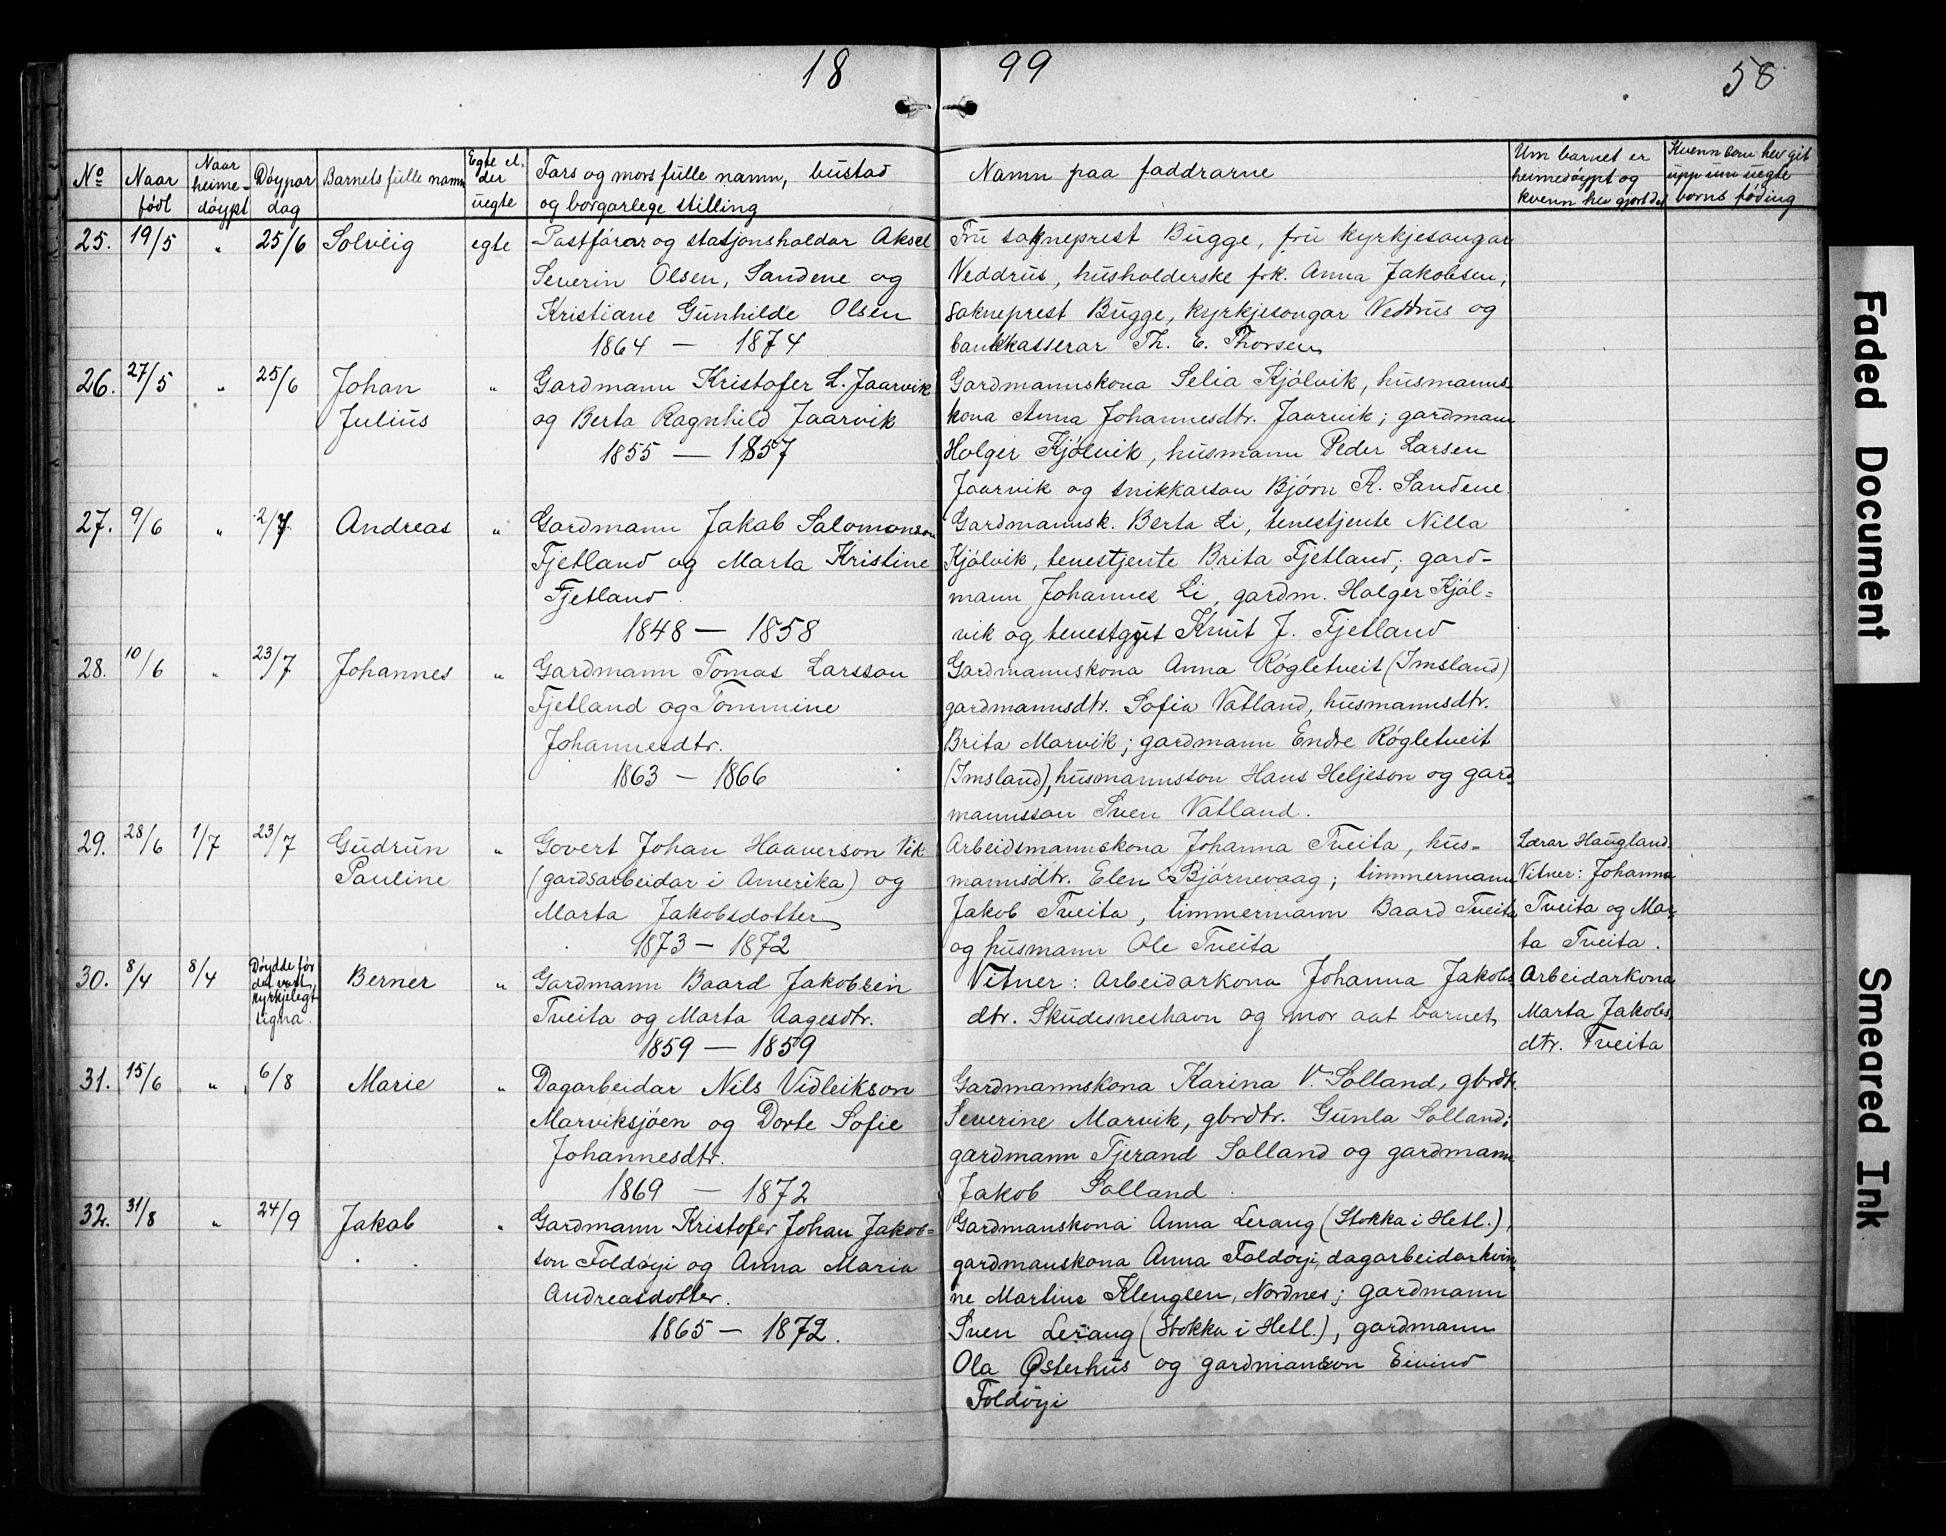 18 99 58
No Naar født Naar heime-døypt Døypar dag Barnets fulle namn Egte el. der uegte Fars og mors fulle namn, bustad og borgarlege stilling Namn paa faddrarne Um barnet er heimedøypt og kvenn hev gjort det Kvenn som hev git upp um uegte borns føding
25. 19/5 " 25/6 Solveig egte Postførar og stasjonsholdar Aksel
Severin Olsen, Sandene og
Kristiane Gunhilde Olsen
1864 — 1874
Fru sokneprest Bugge, fru kyrkjesongar
Veddrus, husholderske frk. Anna Jakobsen,
sokneprest Bugge, kyrkjesongar Veddrus og
bankkasserar Th. E. Thorsen
26. 27/5 " 25/6 Johan Julius " Gardmann Kristofer L. Jaarvik
og Berta Ragnhild Jaarvik
1855 — 1857
Gardmannskona Selia Kjølvik, husmanns-
kona Anna Johannesdtr. Jaarvik; gardmann
Holger Kjølvik, husmann Peder Larsen
Jaarvik og snikkarson Bjørn K. Sandene
27. 9/6 " 2/7 Andreas " Gardmann Jakob Salomonson
Fjetland og Marta Kristine
Fjetland.
1848 — 1858
Gardmannsk. Berta Li, tenestjente Nilla
Kjølvik, tenestjente Brita Fjetland; gard-
mann Johannes Li, gardm. Holger Kjøl=
vik og tenestgut Knut J. Fjetland
28. 10/6 " 23/7 Johannes " Gardmann Tomas Larsson
Fjetland og Tommine
Johannesdtr.
1863 — 1866
Gardmannskona Anna Røgletveit (Imsland)
gardmannsdtr. Sofia Vatland, husmannsdtr.
Brita Marvik; gardmann Endre Røgletveit
(Imsland), husmannsson Hans Heljeson og gard-
mannsson Sven Vatland.
29. 28/6 1/7 23/7 Gudrun Pauline " Govert Johan Haaverson Vik
(gardsarbeidar i Amerika) og
Marta Jakobsdotter
1873 — 1872
Arbeidsmannskona Johanna Tveita, hus-
mannsdtr. Elen Bjørnevaag; timmermann
Jakob Tveita, timmermann Baard Tveita
og husmann Ole Tveita
Lærar Haugland.
Vitner: Johanna
Tveita og Mar-
ta Tveita.
30. 8/4 8/4 Døydde før det vart kyrkjelegt signa. Berner " Gardmann Baard Jakobsen
Tveita og Marta Aagesdtr.
1859 — 1859
Vitner: Arbeidarkona Johanna Jakobs
dtr. Skudesneshavn og mor aat barnet
Arbeidarkona
Marta Jakobs
dtr. Tveita
31. 15/6 " 6/8 Marie " Dagarbeidar Nils Vidleikson
Marviksjøen og Dorte Sofie
Johannesdtr.
1869 — 1872
Gardmannskona Karina V. Solland, gbrdtr.
Severine Marvik, gbrdtr. Gunla Solland;
gardmann Tjerand Solland og gardmann
Jakob Solland.
32. 31/8 " 24/9 Jakob " Gardmann Kristofer Johan Jakob=
son Foldøyi og Anna Maria
Andreasdotter.
1865 — 1872.
Gardmanskona Anna Lerang (Stokka i Hetl.),
gardmanskona Anna Foldøyi, dagarbeidarkvin-
ne Martine Klengsen, Nordnes; gardmann
Sven Lerang (Stokka i Hetl.), gardmann
Ola Østerhus og gardmanson Eivind
Foldøyi
Faded Document
Smeared Ink